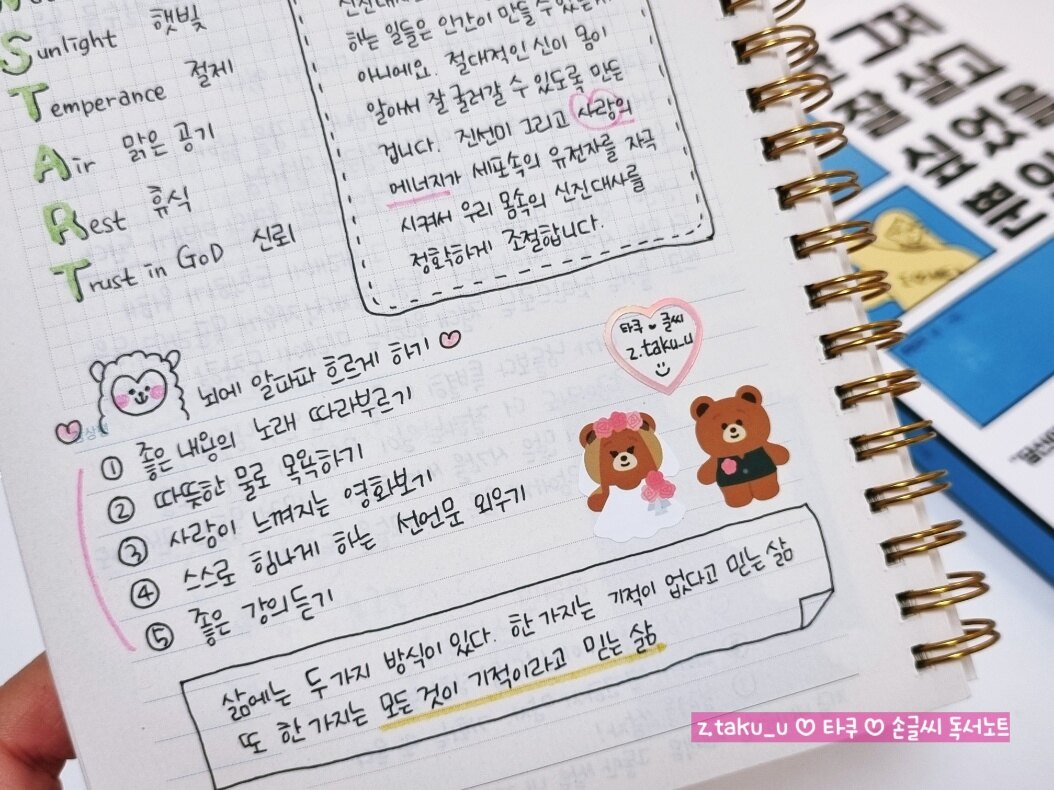 Sunlight 햇빛
Temperance 절제
Air 맑은 공기
Rest 휴식
Trust in GoD 신뢰
하는 일들은 인간이 만들 수 있는게
아니에요. 절대적인 신이 몸이
알아서 잘 굴러갈 수 있도록 만든
겁니다. 진선미 그리고 사랑의
에너지가 세포속의 유전자를 자극
시켜서 우리 몸속의 신진대사를
정확하게 조절합니다.
타쿠 ♥ 글씨
z.taku_u
뇌에 알파파 흐르게 하기 ♡
① 좋은 내용의 노래 따라부르기
② 따뜻한 물로 목욕하기
③ 사랑이 느껴지는 영화보기
④ 스스로 힘나게 하는 선언문 외우기
⑤ 좋은 강의듣기
삶에는 두가지 방식이 있다. 한 가지는 기적이 없다고 믿는 삶
또 한 가지는 모든 것이 기적이라고 믿는 삶
z.taku_u ♡ 타쿠 ♡ 손글씨 독서노트